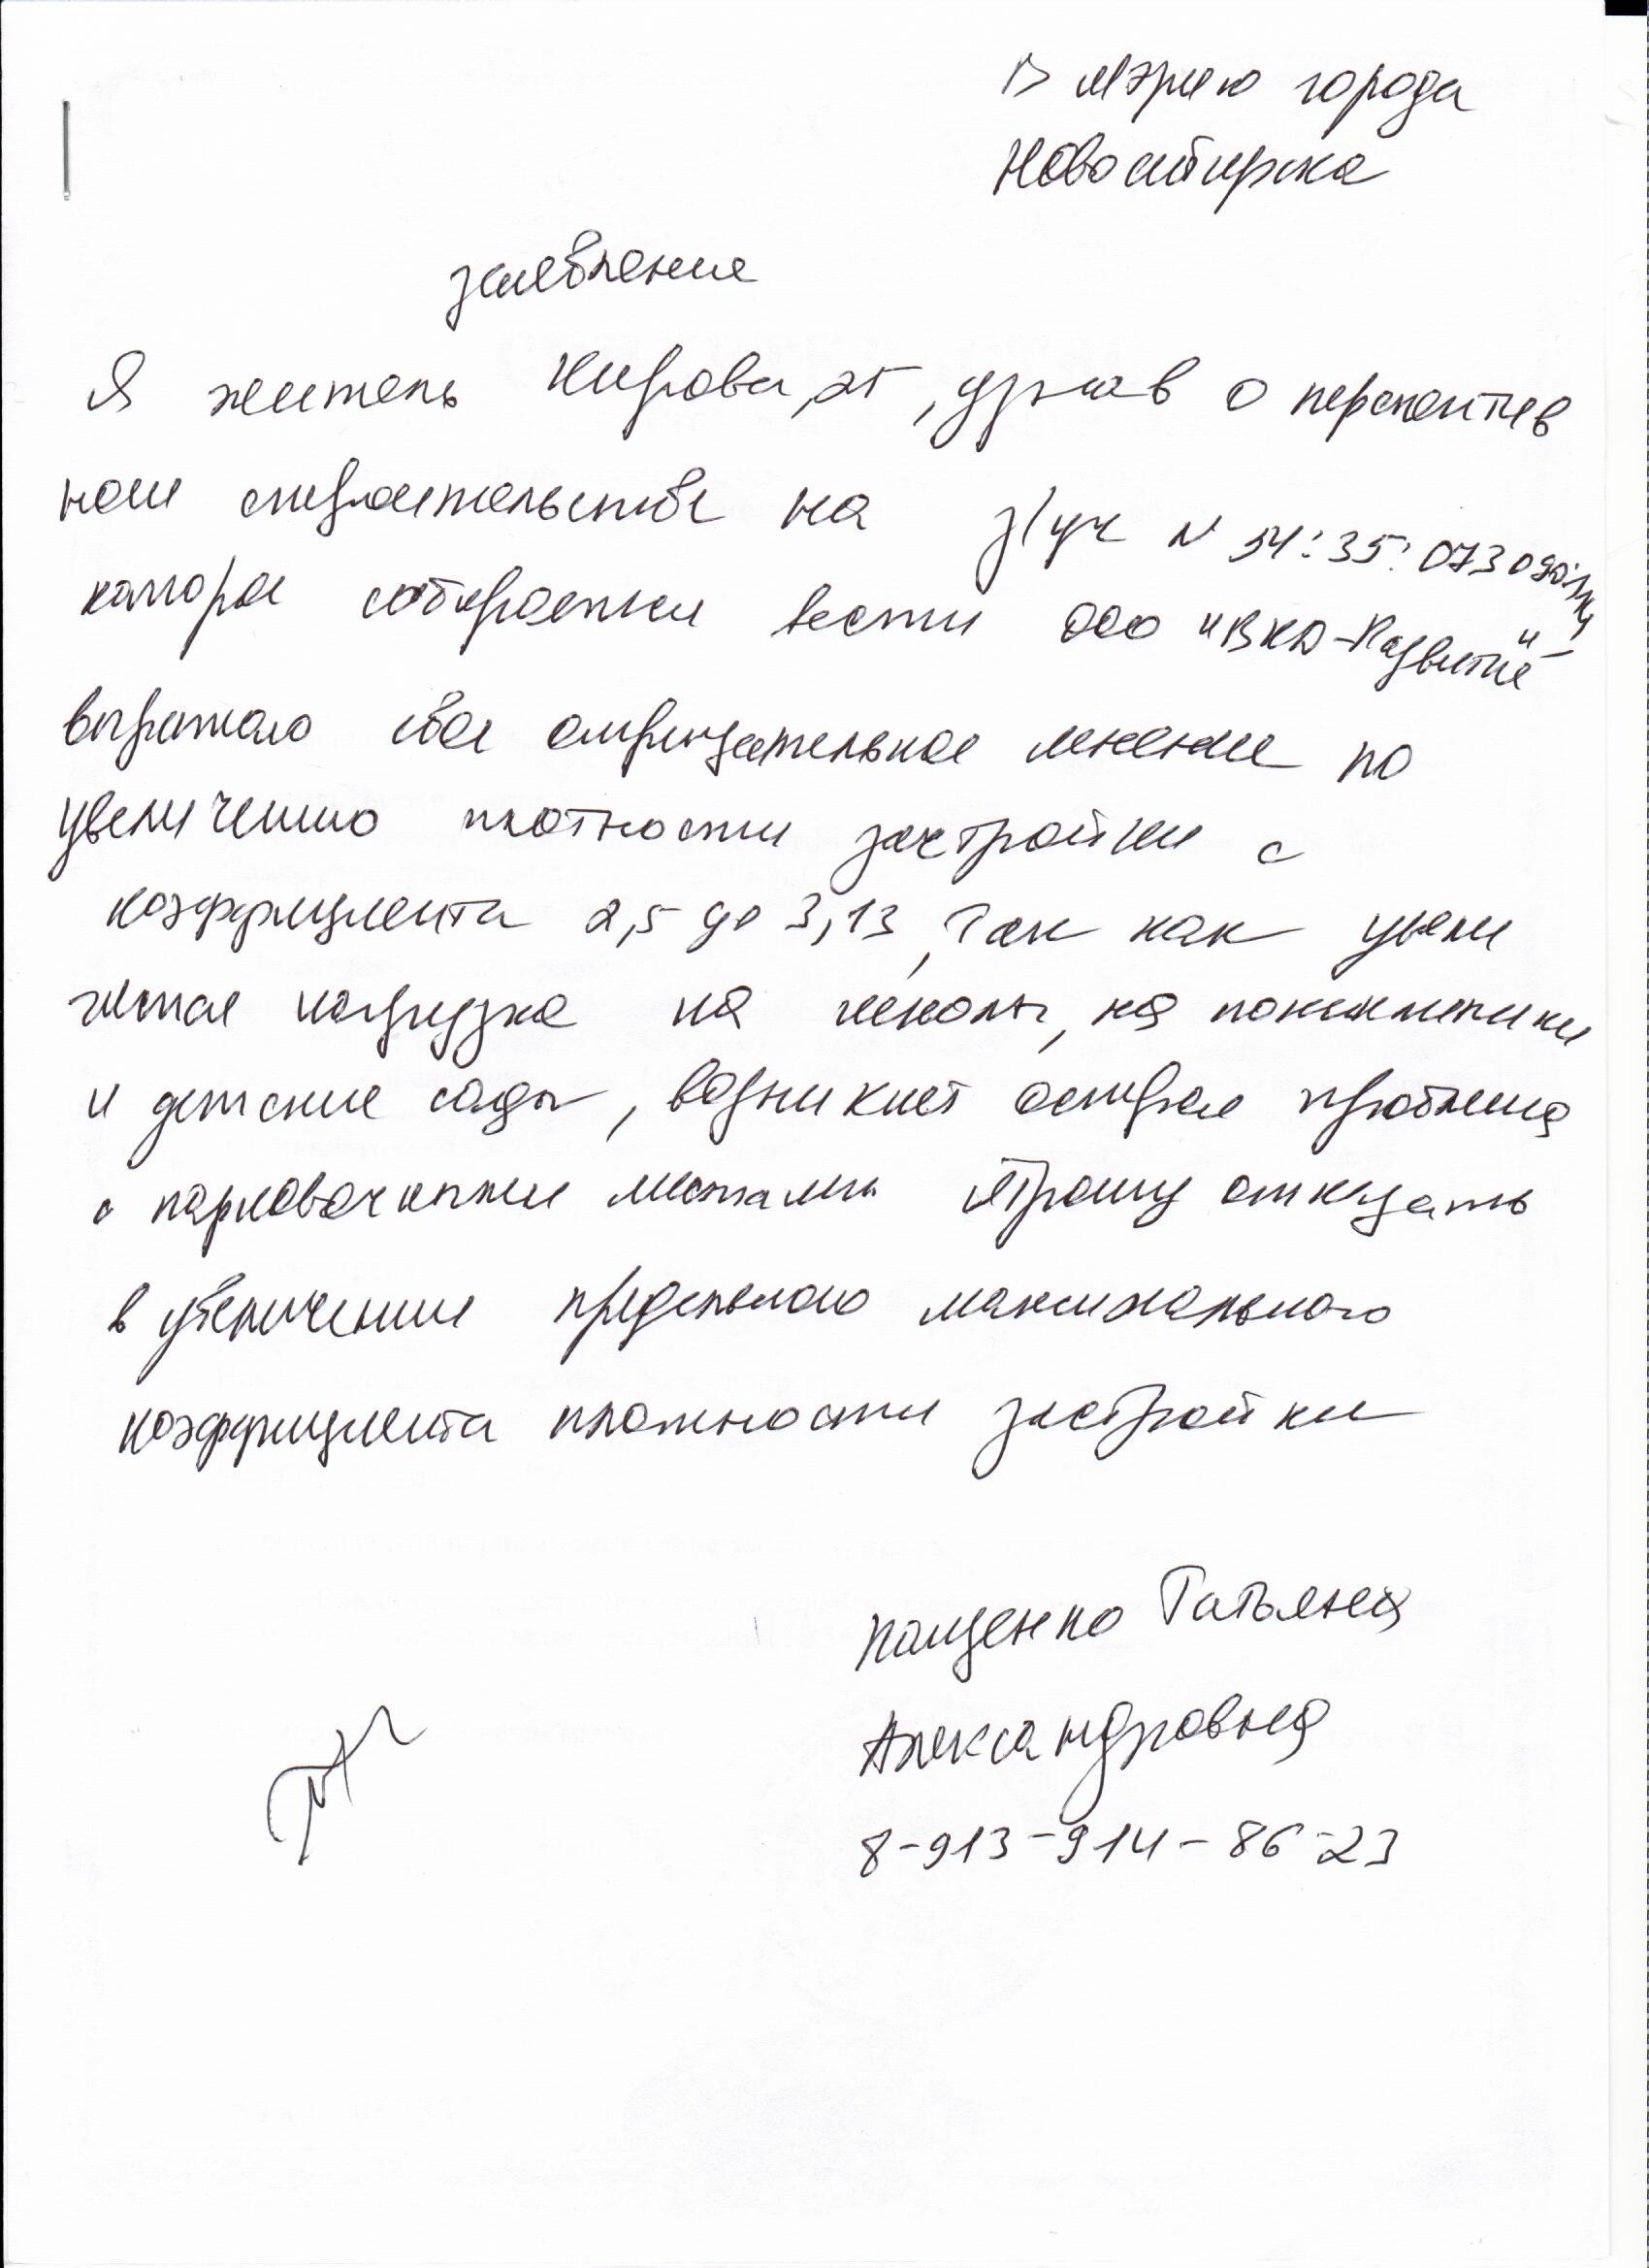 В мэрию города
Новосибирска
заявление
Я житель Кирова, 25, узнав о перспектив
ном строительстве на з/уч N 54:35:073090:
которое собирается вести ООО "ВКД-Развитие"
выражаю свое отрицательное мнение по
увеличению плотности застройки с
коэффициента 2,5 до 3,13, так как увели
чится нагрузка на школы, на поликлиники
и детские сады, возникнет острая проблема
с парковочными местами Прошу отказать
в увеличении предельного максимального
коэффициента плотности застройки
Пащенко Татьяна
Александровна
8-913-914-86-23